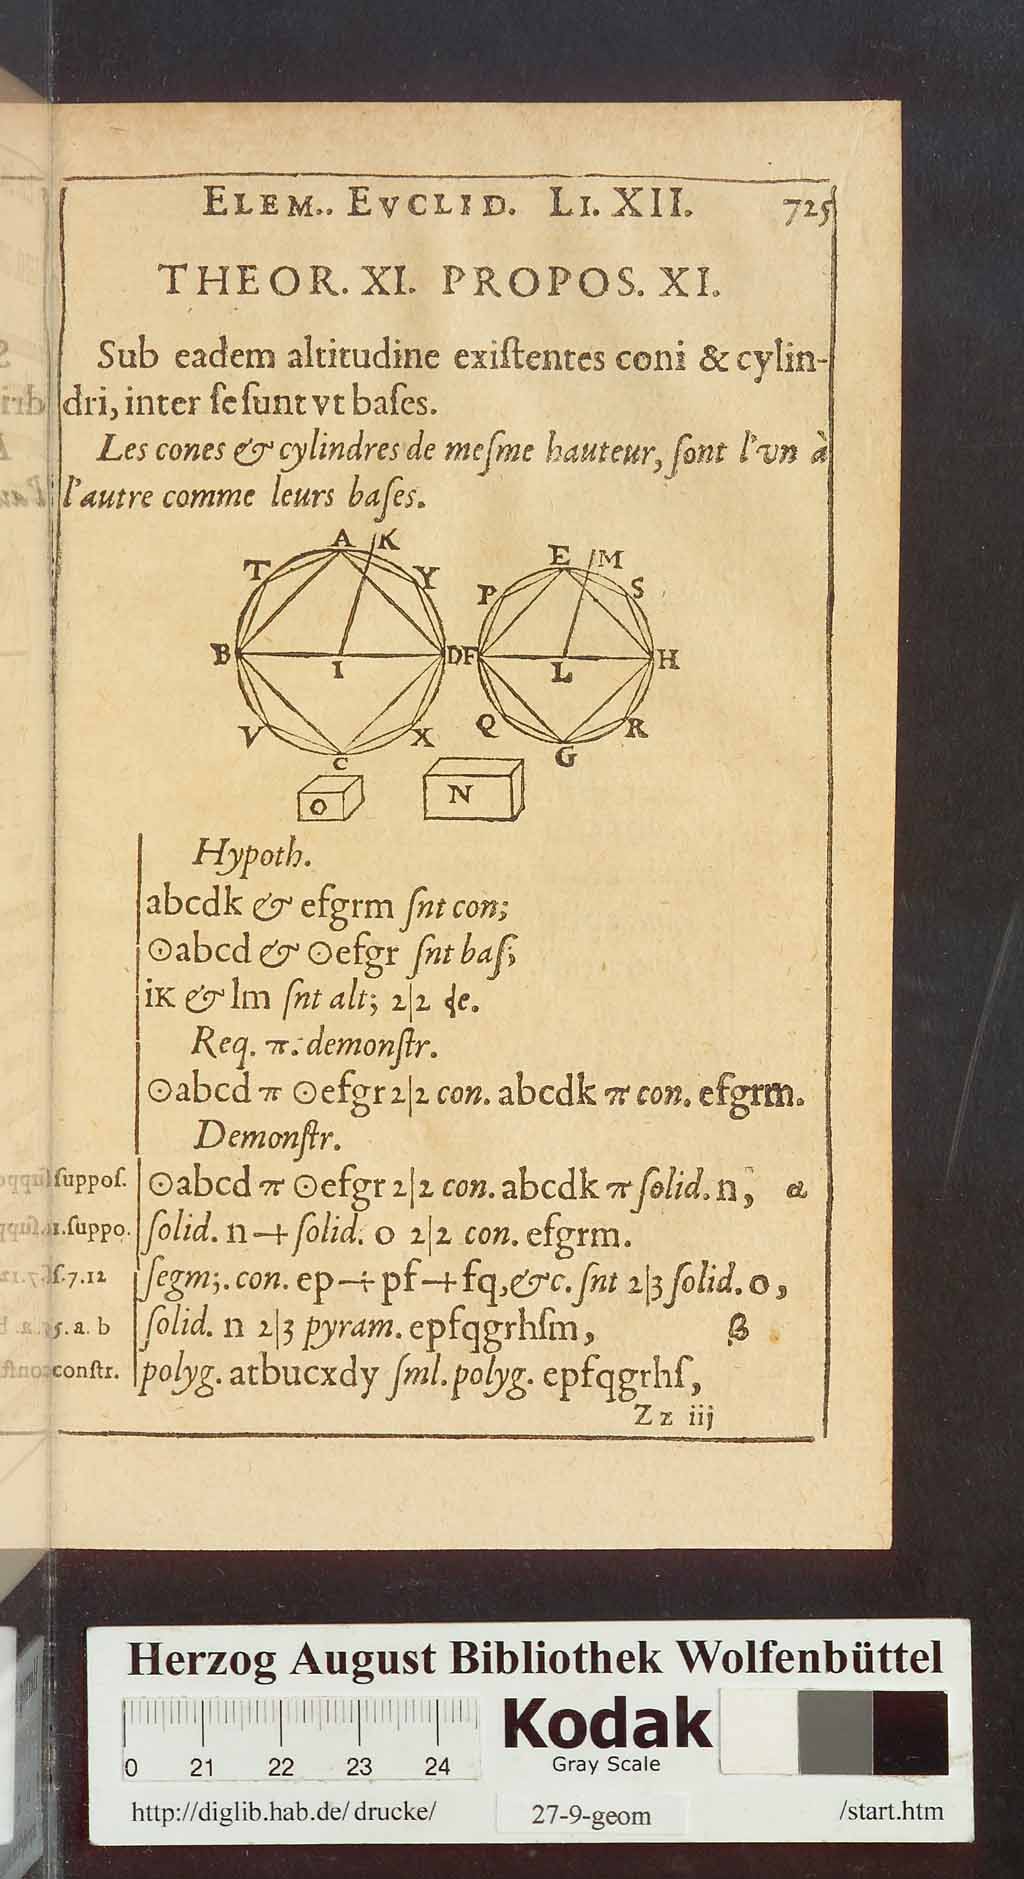 ELEM.. EVCLID. LI. XII. 725
THEOR. XI. PROPOS. XI.
Sub eadem altitudine exiſtentes coni & cylin-
dri, inter ſe ſunt vt baſes.
Les cones & cylindres de meſme hauteur, ſont l'vn à
l'autre comme leurs baſes.
A K
T Y
B I D
V X
C
E M
P S
F L H
Q R
G
O N
Hypoth.
abcdk & efgrm ſnt con;
⊙abcd & ⊙efgr ſnt baſ;
iK & lm ſnt alt; 2|2 ɖe.
Req. π. demonſtr.
⊙abcd π ⊙efgr 2|2 con. abcdk π con. efgrm.
Demonſtr.
ſuppoſ. ⊙abcd π ⊙efgr 2|2 con. abcdk π ſolid. n, α
1.ſuppo. ſolid. n + ſolid. o 2|2 con. efgrm.
ſ.7.12 ſegm;. con. ep + pf + fq, &c. ſnt 2|3 ſolid. o,
5. a. b ſolid. n 2|3 pyram. epfqgrhſm, β
conſtr. polyg. atbucxdy ſml. polyg. epfqgrhſ,
Zz iij
Herzog August Bibliothek Wolfenbüttel
0 21 22 23 24
Kodak
Gray Scale
http://diglib.hab.de/drucke/ 27-9-geom /start.htm